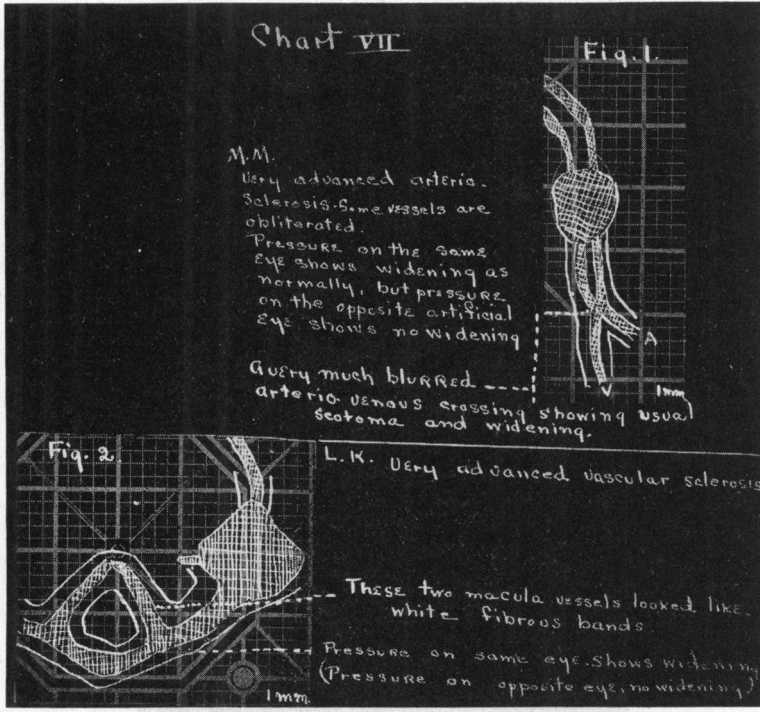 Chart VII
Fig. 1.
M.M.
Very advanced arterio-
Sclerosis. Some vessels are
obliterated.
Pressure on the same
Eye shows widening as
normally, but pressure
on the opposite artificial
Eye shows no widening
A very much blurred
arterio-venous crossing showing usual
scotoma and widening.
A
V
1mm
Fig. 2.
L.K. Very advanced vascular sclerosis
These two macula vessels looked like
white fibrous bands
Pressure on same eye shows widening
(Pressure on opposite eye, no widening)
1mm